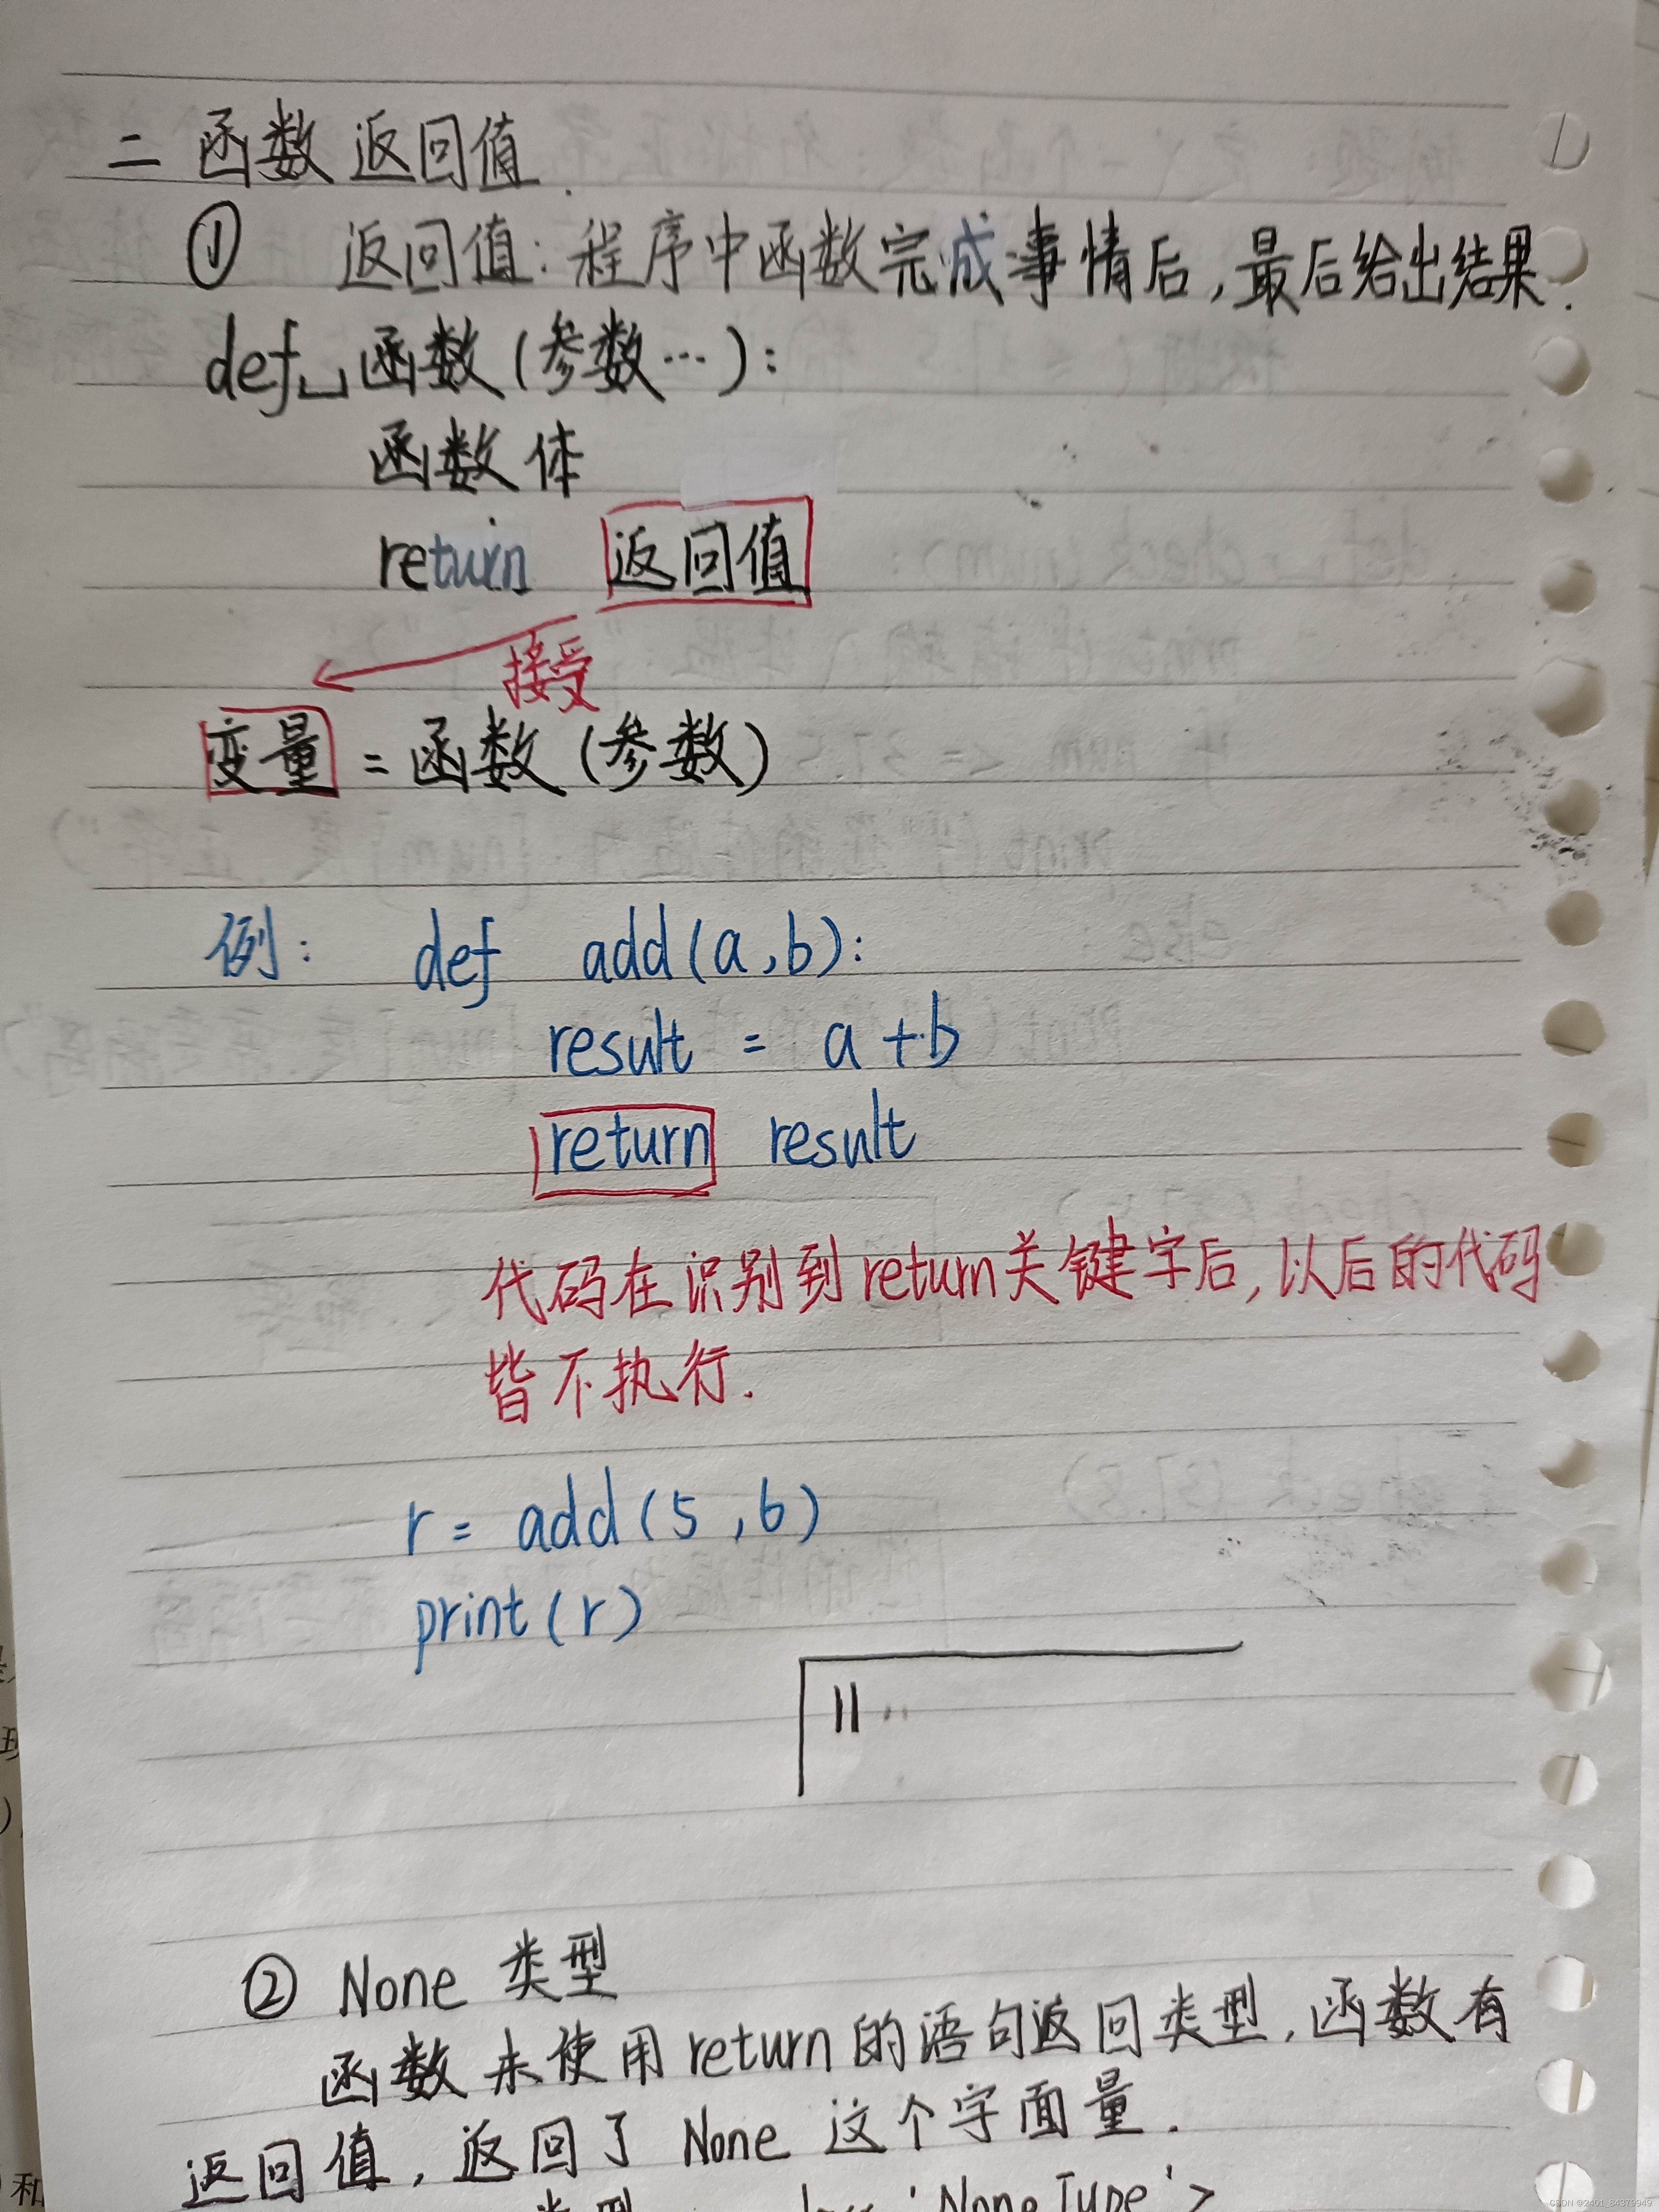 二 函数返回值.
① 返回值:程序中函数完成事情后,最后给出结果.
def␣函数(参数…):
函数体
return 返回值
接受
变量 = 函数(参数)
例: def add(a,b):
result = a+b
return result
代码在识别到return关键字后,以后的代码
皆不执行.
r = add(5,6)
print(r)
11
② None 类型
函数未使用return的语句返回类型,函数有
返回值,返回了 None 这个字面量.
类型 'NoneType'>
CSDN @2401_84379949